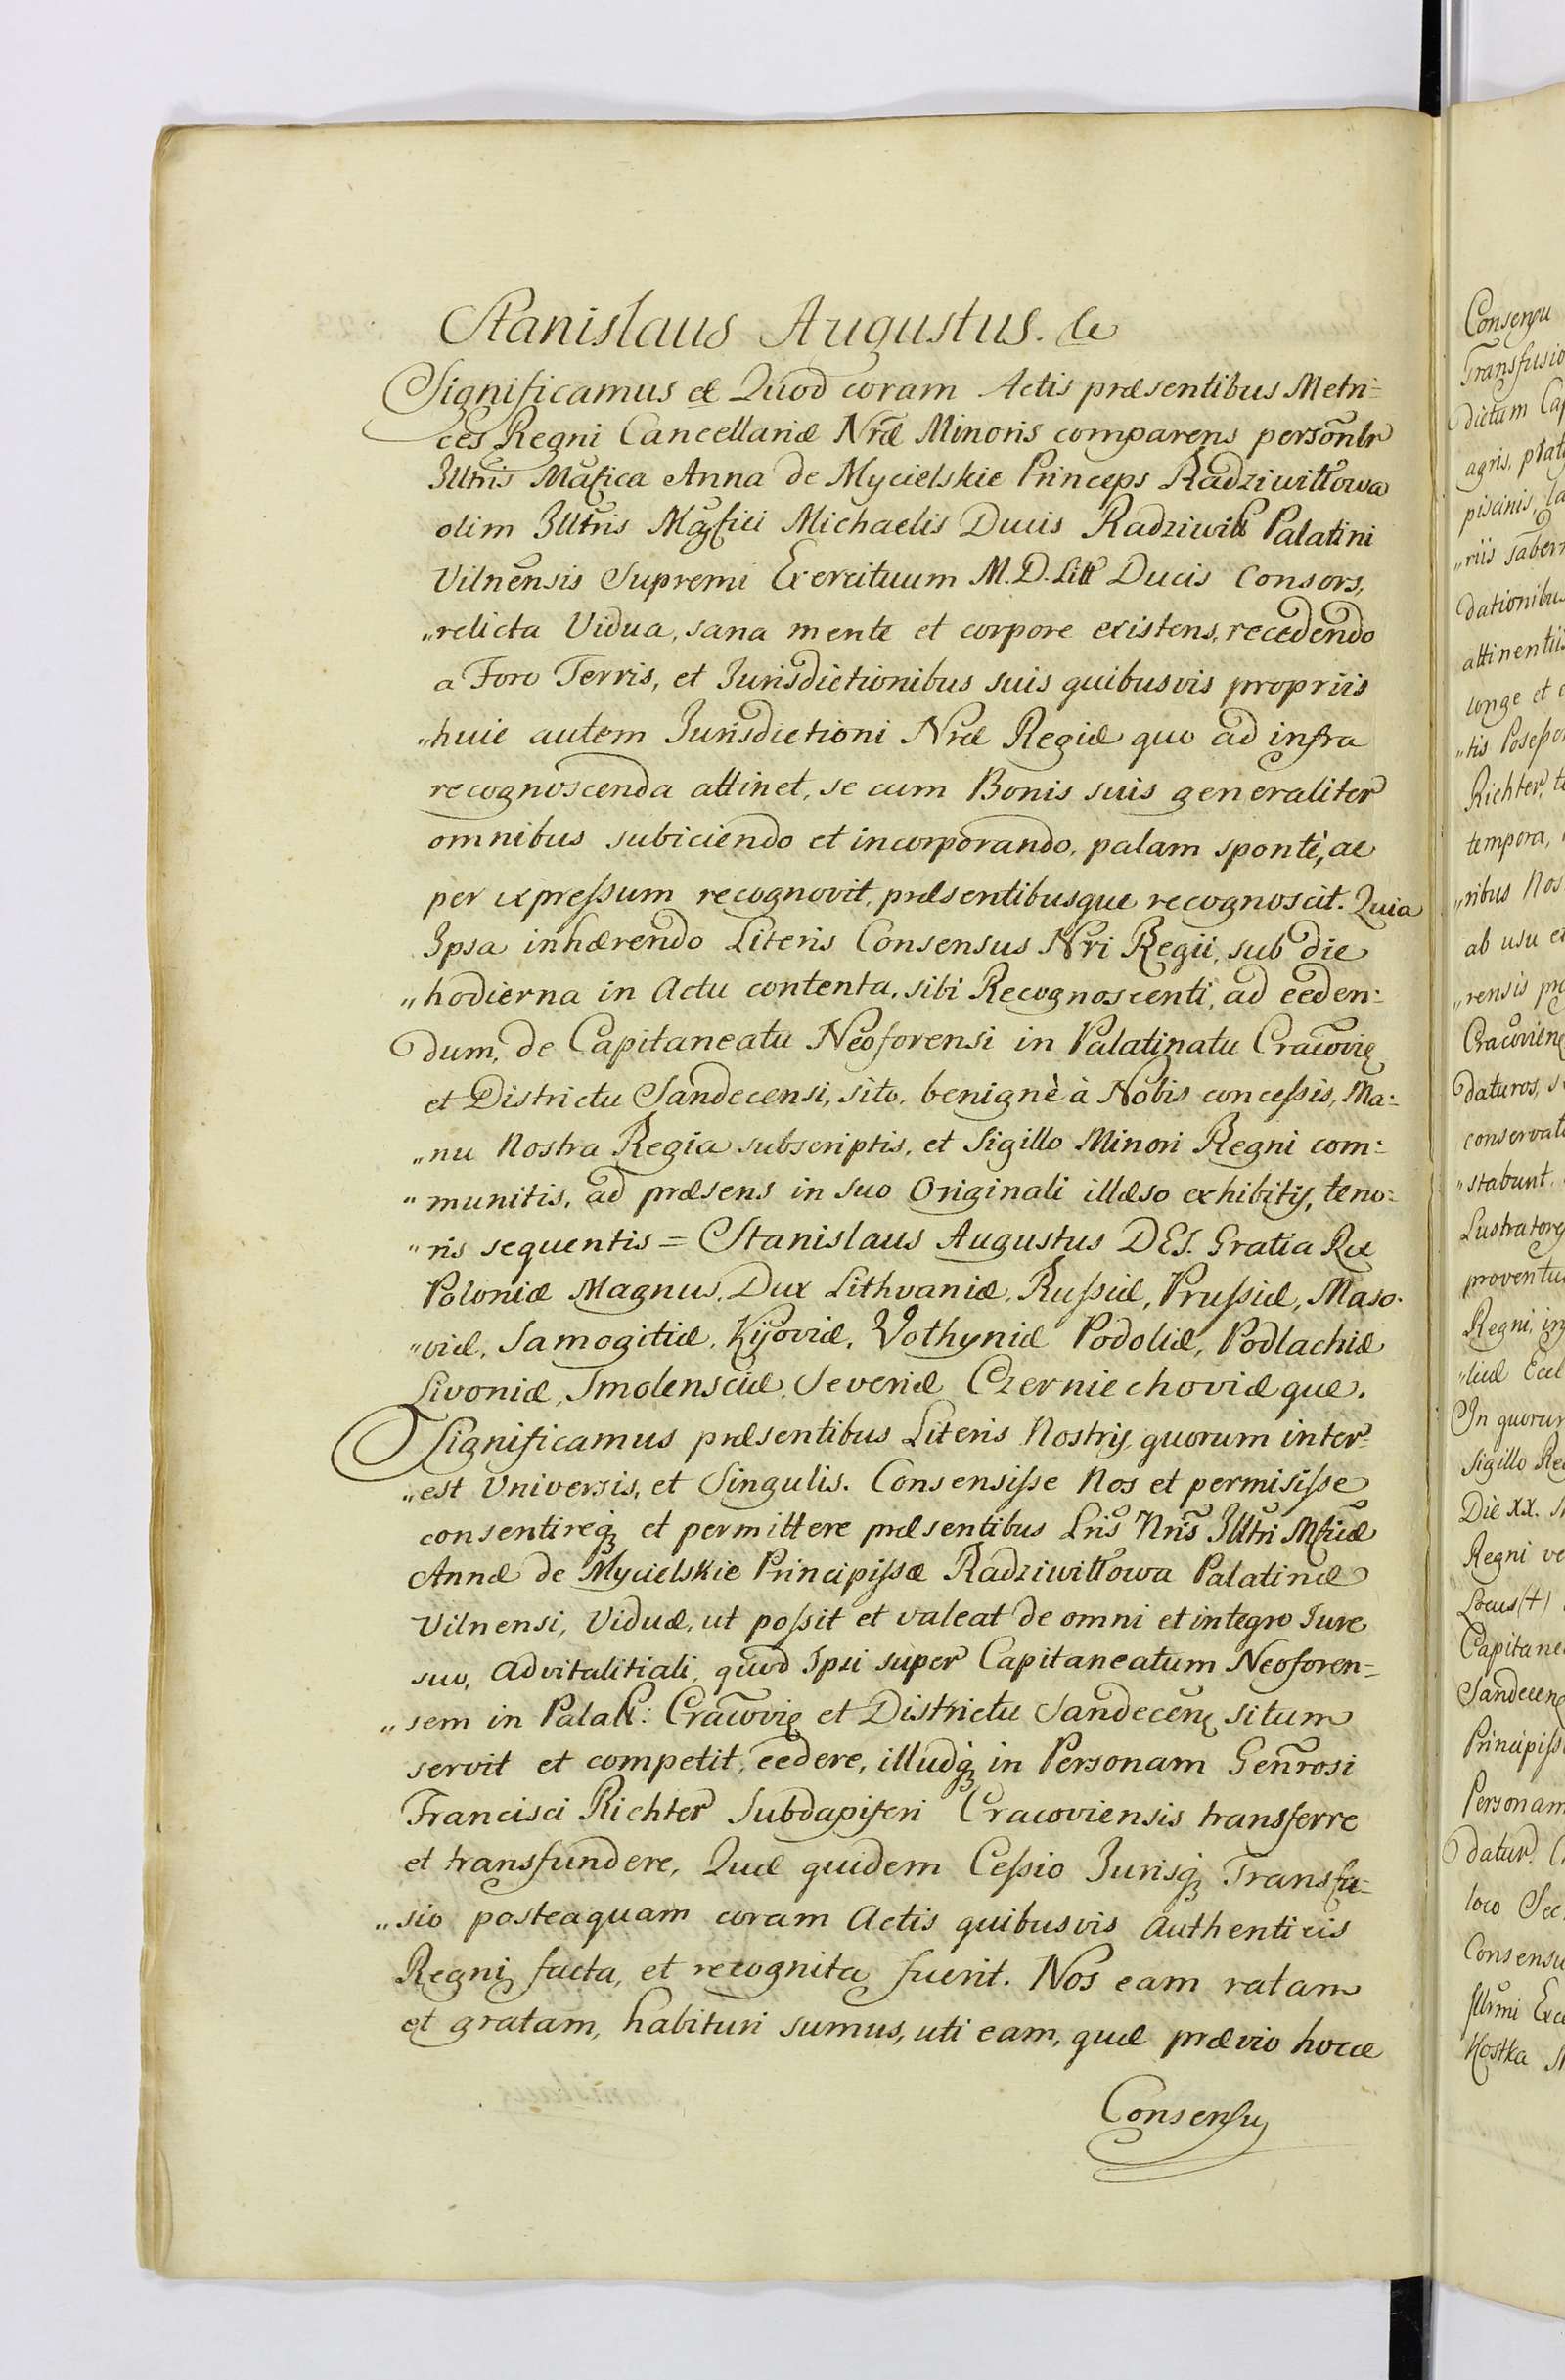 Stanislaus Augustus. &c
Significamus &c Quod coram Actis præsentibus Metri=
ces Regni Cancellariæ Nræ Minoris comparens personlr
Illtris Mafica Anna de Mycielskie Princeps Radziwiłłowa
olim Illtris Magfici Michaelis Ducis Radziwiłł Palatini
Vilnensis Supremi Exercituum M. D. Litt Ducis Consors,
„relicta Vidua, sana mente et corpore existens, recedendo
a Foro Terris, et Jurisdictionibus suis quibusvis propriis
„huic autem Jurisdictioni Nræ Regiæ quo ad infra
recognoscenda attinet, se cum Bonis suis generaliter
omnibus subiciendo et incorporando, palam spontè, ac
per expressum recognovit, præsentibusque recognoscit. Quia
Ipsa inhærendo Literis Consensus Nri Regii, sub die
„hodierna in Actu contenta, sibi Recognoscenti, ad ceden=
dum, de Capitaneatu Neoforensi in Palatinatu Cracoviæ
et Districtu Sandecensi, sito, benignè à Nobis concessis, Ma=
„nu Nostra Regia subscriptis, et Sigillo Minori Regni com=
„munitis, ad præsens in suo Originali illæso exhibitis, teno=
„ris sequentis = Stanislaus Augustus DEI. Gratia Rex
Poloniæ Magnus, Dux Lithvaniæ, Russiæ, Prussiæ, Maso-
„viæ, Samogitiæ, Kijoviæ, Volhyniæ Podoliæ, Podlachiæ
Livoniæ, Smolensciæ, Severiæ Czerniechoviæque.
Significamus præsentibus Literis Nostris, quorum inter=
„est Universis, et Singulis. Consensisse Nos et permisisse
consentireq; et permittere præsentibus Lris Nris Illtri Mficæ
Annæ de Mycielskie Principissæ Radziwiłłowa Palatinæ
Vilnensi, Viduæ, ut possit et valeat de omni et integro Jure
suo, advitalitiali, quod Ipsi super Capitaneatum Neoforen=
„sem in Palatt: Cracoviæ et Districtu Sandecen, situm
servit et competit, cedere, illudq; in Personam Genrosi
Francisci Richter Subdapiferi Cracoviensis transferre
et transfundere, Quæ quidem Cessio Jurisq; Transfu=
„sio posteaquam coram Actis quibusvis authenticis
Regni facta, et recognita fuerit. Nos eam ratam
et gratam, habituri sumus, uti eam, quæ prævio hocce
Consensu
Consensu
Transfusio
dictum Cap
agris, prat
piscinis, la
„riis tabern
dationibus
attinentiis
longe et
„tis Posesso
Richter, t
tempora,
„ribus Nos
ab usu et
„rensis pr
Cracovien
daturos, s
conservat
„stabunt.
Lustratore
proventu
Regni, in
„liæ Ecl
In quorum
Sigillo Re
Die XX. M
Regni ve
Locus (+)
Capitane
Sandecen
Principiss
Personam
datur.
loco Sec
Consensu
Illrmi Exc
Kostka M